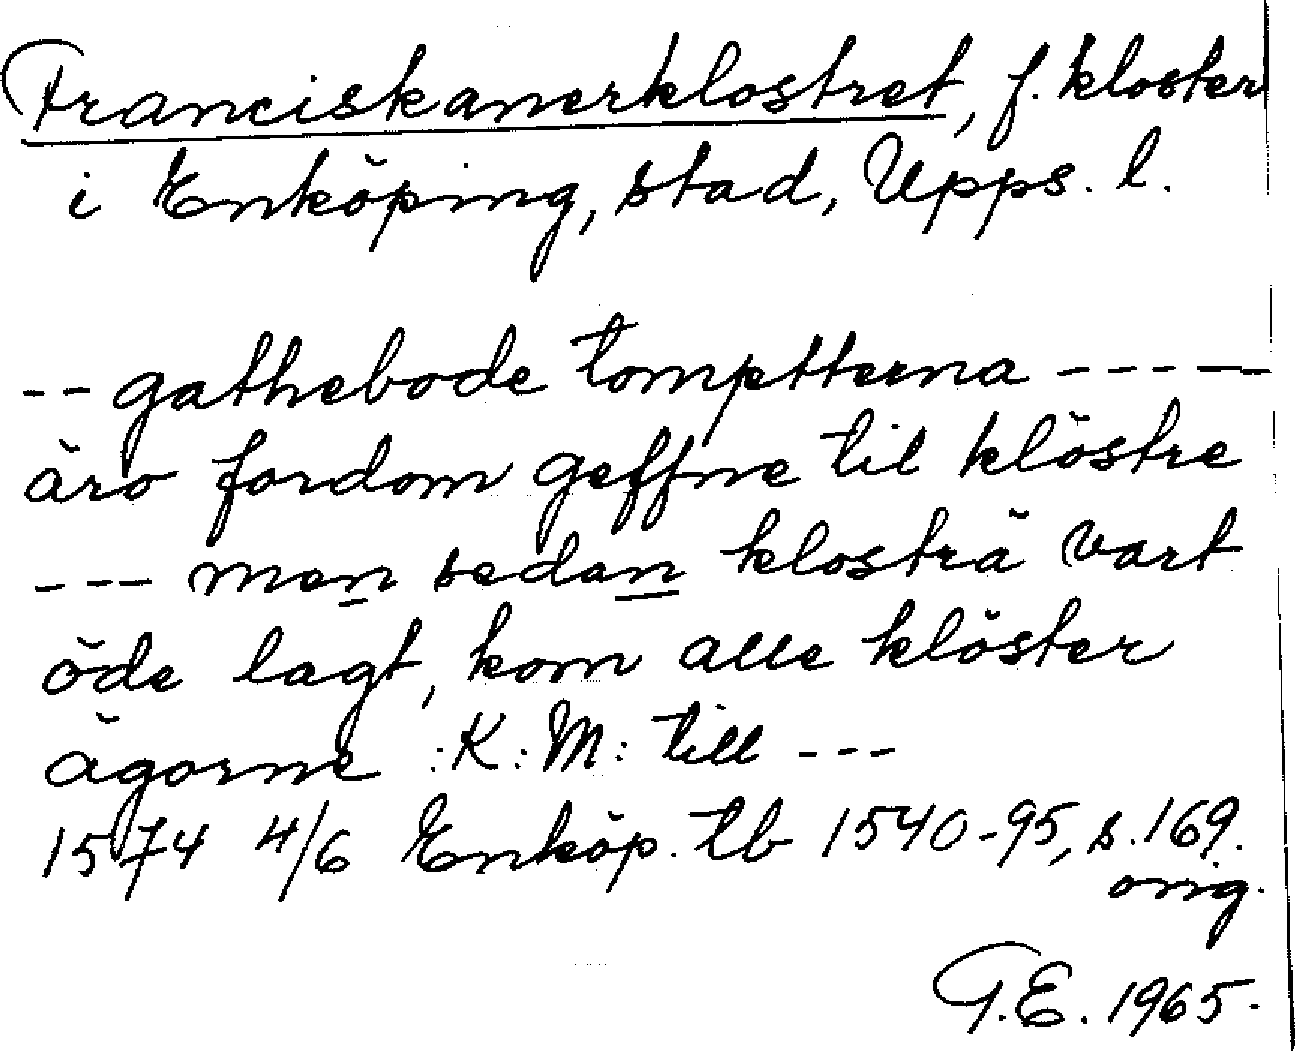 Franciskanerklostret, f. kloster
i Enköping, stad, Upps. l.
-- gathebode tomptterna -----
äro fordom geffne til klöstre
--- men sedan klosträ vart
öde lagt, kom alle klöster
ägorne :K:M: till ---
1574 4/6 Enköp. tb 1540-95, s. 169.
orig.
G.E. 1965.